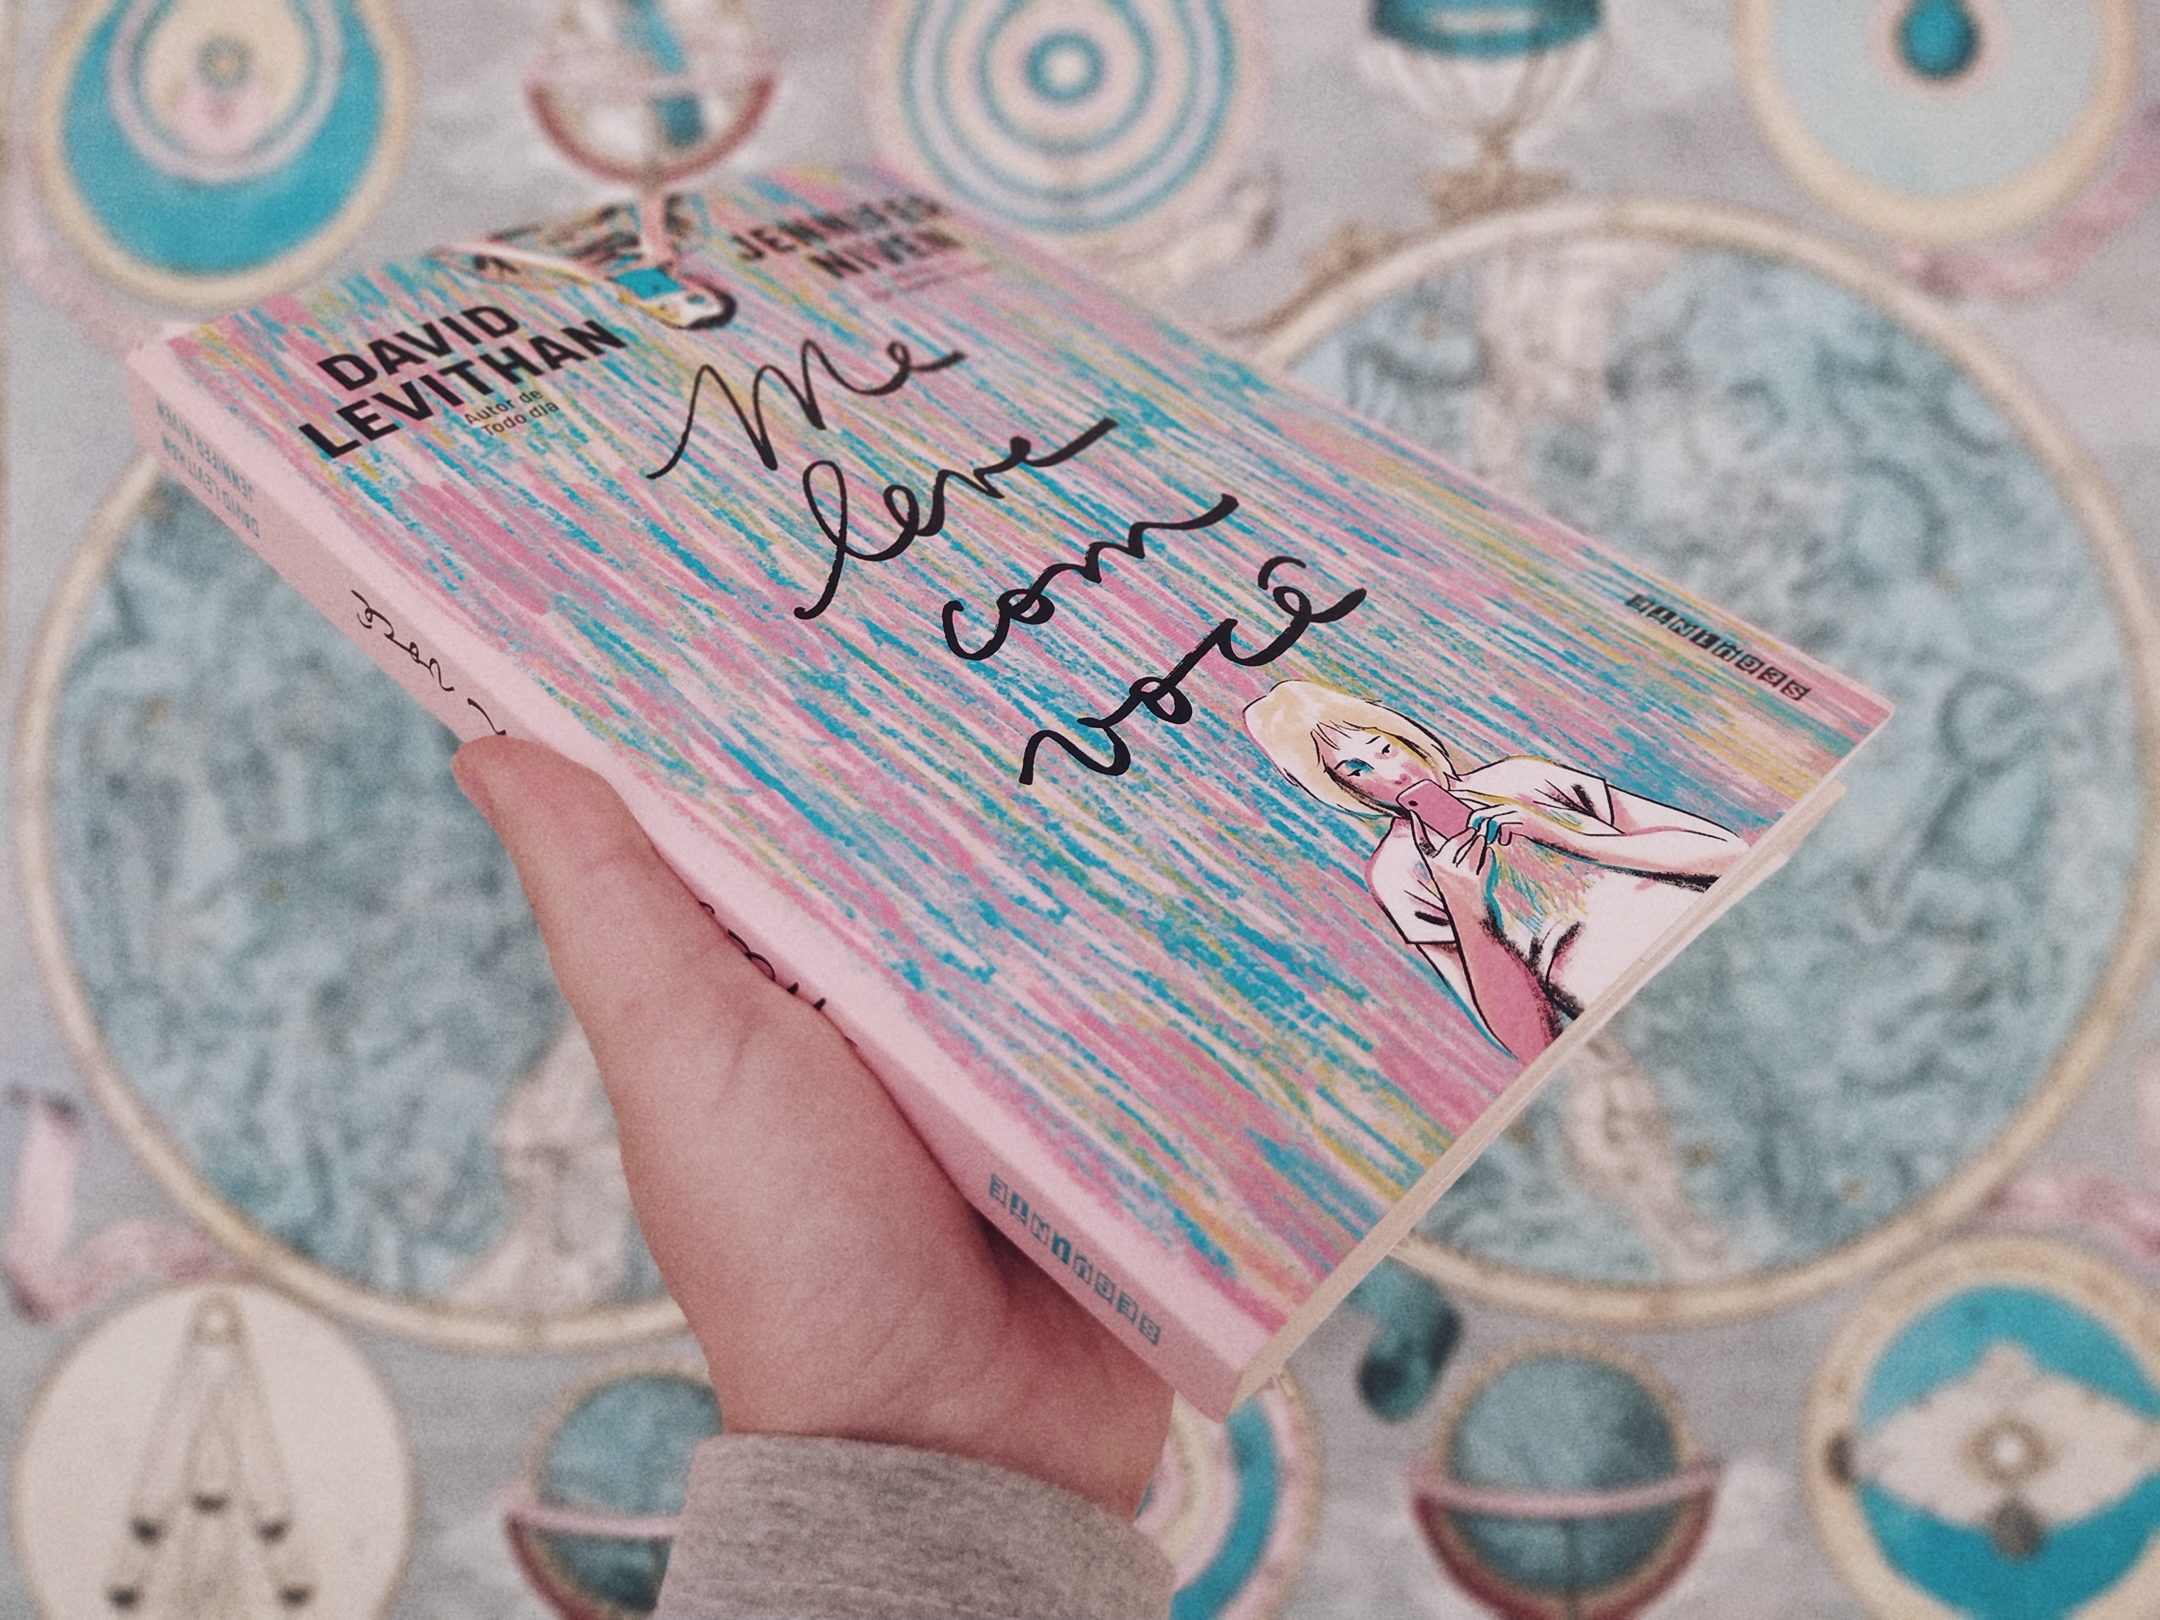 DAVID
LEVITHAN
Autor de
Todo dia
JENNIFER
NIVEN
Me
leve
com
você
SEGUINTE
DAVID LEVITHAN
JENNIFER NIVEN
SEGUINTE